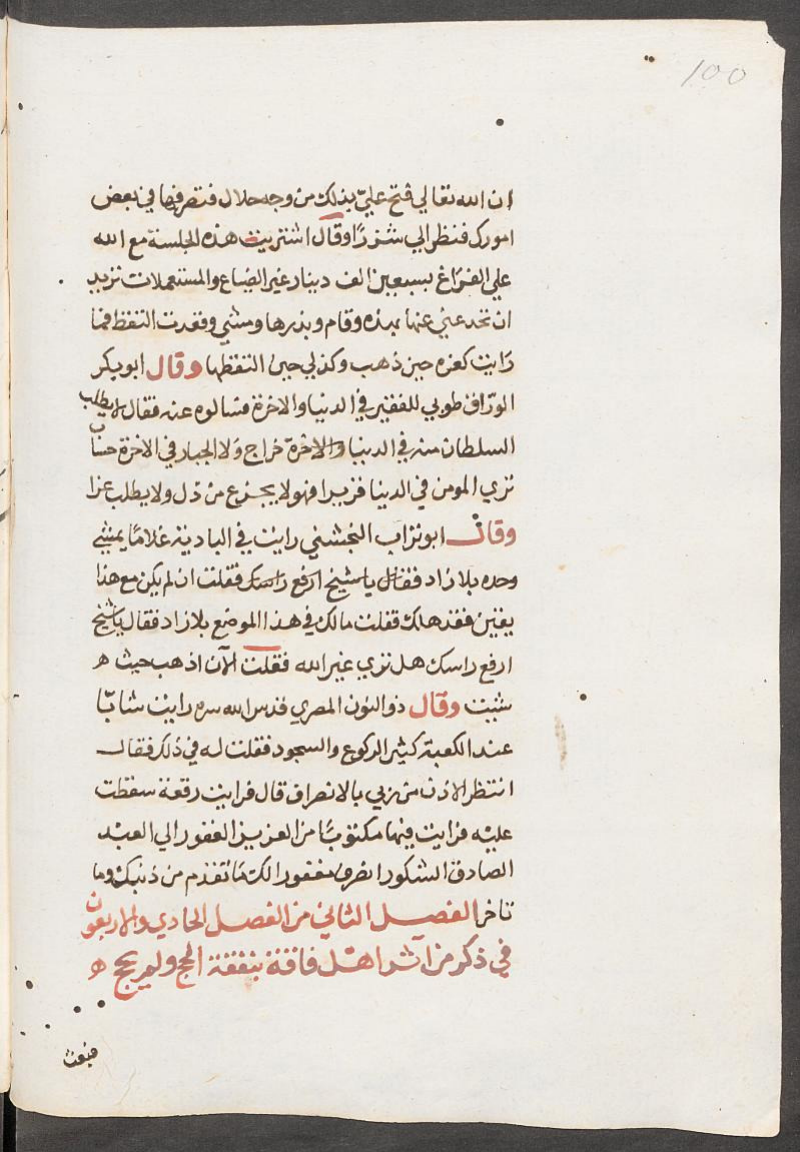 100
ان الله تعالي فتح عليّ بذلك من وجه حلال فتصرفها في بعض
امورك فنظر الي شزرًا وقال اشتريت هذه الجلسة مع الله
علي الفراغ بسبعين الف دينار غير الضياع والمستعملات تريد
ان تخدعني عنها بهذه وقام وبذرها ومشي وقعدت التقط فما
رايت كعزه حين ذهب وكذلي حين التقطها وقال ابو بكر
الورّاق طوبي للفقير في الدنيا والاخرة فسالوه عنه فقال لا يطلب
السلطان منه في الدنيا خراج ولا الجبار في الاخرة حساب
تري المومن في الدنيا فريدا فهو لا يجزع من ذل ولا يطلب عزا
وقال ابو تراب النخشبي رايت في البادية غلامًا يمشي
وحده بلا زاد فقال يا شيخ ارفع راسك فقلت ان لم يكن مع هذا
يقين فقد هلك فقلت مالك في هذا الموضع بلا زاد فقال يا شيخ
ارفع راسك هل تري غير الله فقلت الآن اذهب حيث ه
شيت وقال ذو النون المصري قدس الله سره رايت شابّا
عند الكعبة كثير الركوع والسجود فقلت له في ذلك فقال
انتظر الاذن من ربي بالانصراف قال فرايت رقعة سقطت
عليه فرايت فيها مكتوبًا من العزيز الغفور الي العبد
الصادق الشكور انصرف مغفورا لك ما تقدم من ذنبك وما
تاخر الفصل الثاني من الفصل الحادي والاربعون
في ذكر من آثر اهل فاقة بنفقة الحج ولم يحج ه
فبعث